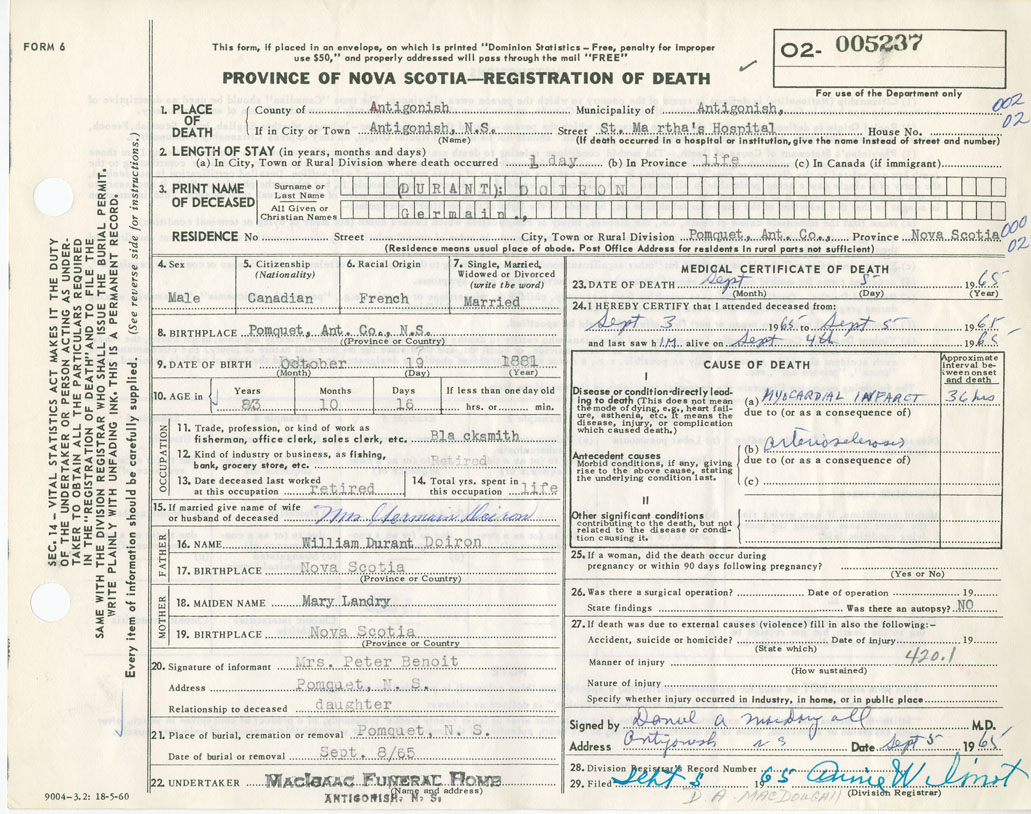 FORM 6
This form, if placed in an envelope, on which is printed "Dominion Statistics—Free, penalty for improper
use $50," and properly addressed will pass through the mail "FREE"
PROVINCE OF NOVA SCOTIA—REGISTRATION OF DEATH
O2- 005237
For use of the Department only
002
02
1. PLACE OF DEATH
County of Antigonish Municipality of Antigonish,
If in City or Town Antigonish, N.S. Street St. Ma rtha's Hospital House No.
(Name) (If death occurred in a hospital or institution, give the name instead of street and number)
2. LENGTH OF STAY (in years, months and days)
(a) In City, Town or Rural Division where death occurred 1 day (b) In Province life (c) In Canada (if immigrant)
3. PRINT NAME OF DECEASED
Surname or Last Name (DURANT); DOIRON
All Given or Christian Names Germain.,
RESIDENCE No Street City, Town or Rural Division Pomquet, Ant. Co., Province Nova Scotia
000
02
(Residence means usual place of abode. Post Office Address for residents in rural parts not sufficient)
4. Sex
Male
5. Citizenship
(Nationality)
Canadian
6. Racial Origin
French
7. Single, Married,
Widowed or Divorced
(write the word)
Married
8. BIRTHPLACE Pomquet, Ant. Co., N.S.
(Province or Country)
9. DATE OF BIRTH October 19 1881
(Month) (Day) (Year)
10. AGE in
Years Months Days If less than one day old
83 10 16 hrs. or min.
OCCUPATION
11. Trade, profession, or kind of work as
fisherman, office clerk, sales clerk, etc. Bla cksmith
12. Kind of industry or business, as fishing,
bank, grocery store, etc. Retired
13. Date deceased last worked
at this occupation retired
14. Total yrs. spent in
this occupation life
15. If married give name of wife
or husband of deceased Mrs Germain Doiron
FATHER
16. NAME William Durant Doiron
17. BIRTHPLACE Nova Scotia
(Province or Country)
MOTHER
18. MAIDEN NAME Mary Landry
19. BIRTHPLACE Nova Scotia
(Province or Country
20. Signature of informant Mrs. Peter Benoit
Address Pomquet, N. S.
Relationship to deceased daughter
21. Place of burial, cremation or removal Pomquet, N. S.
Date of burial or removal Sept. 8/65
22. UNDERTAKER MacIsaac Funeral Home
(Name and address)
ANTIGONISH, N. S.
9004—3.2: 18-5-60
SEC. 14—VITAL STATISTICS ACT MAKES IT THE DUTY
OF THE UNDERTAKER OR PERSON ACTING AS UNDER-
TAKER TO OBTAIN ALL THE PARTICULARS REQUIRED
IN THE "REGISTRATION OF DEATH" AND TO FILE THE
SAME WITH THE DIVISION REGISTRAR WHO SHALL ISSUE THE BURIAL PERMIT.
WRITE PLAINLY WITH UNFADING INK. THIS IS A PERMANENT RECORD.
Every item of information should be carefully supplied. (See reverse side for instructions.)
MEDICAL CERTIFICATE OF DEATH
23. DATE OF DEATH Sept 5 1965
(Month) (Day) (Year)
24. I HEREBY CERTIFY that I attended deceased from:
Sept 3 1965 to Sept 5 1965
and last saw hIM alive on Sept 4th 1965
CAUSE OF DEATH
Approximate
interval be-
tween onset
and death
I
Disease or condition directly lead-
ing to death (This does not mean
the mode of dying, e.g., heart fail-
ure, asthenia, etc. It means the
disease, injury, or complication
which caused death.)
(a) MYOCARDIAL INFARCT 36 hrs
due to (or as a consequence of)
Antecedent causes
Morbid conditions, if any, giving
rise to the above cause, stating
the underlying condition last.
(b) Arteriosclerosis
due to (or as a consequence of)
(c)
II
Other significant conditions
contributing to the death, but not
related to the disease or condi-
tion causing it.
25. If a woman, did the death occur during
pregnancy or within 90 days following pregnancy?
(Yes or No)
26. Was there a surgical operation? Date of operation 19
State findings Was there an autopsy? NO
27. If death was due to external causes (violence) fill in also the following:-
Accident, suicide or homicide? Date of injury 19
(State which)
420.1
Manner of injury
(How sustained)
Nature of injury
Specify whether injury occurred in industry, in home, or in public place
Signed by M.D.
Address Antigonish N S Date Sept 5 1965
28. Division Registrar's Record Number
29. Filed Sept 5 1965 Annie W.
(Division Registrar)
D. A. MacDougall